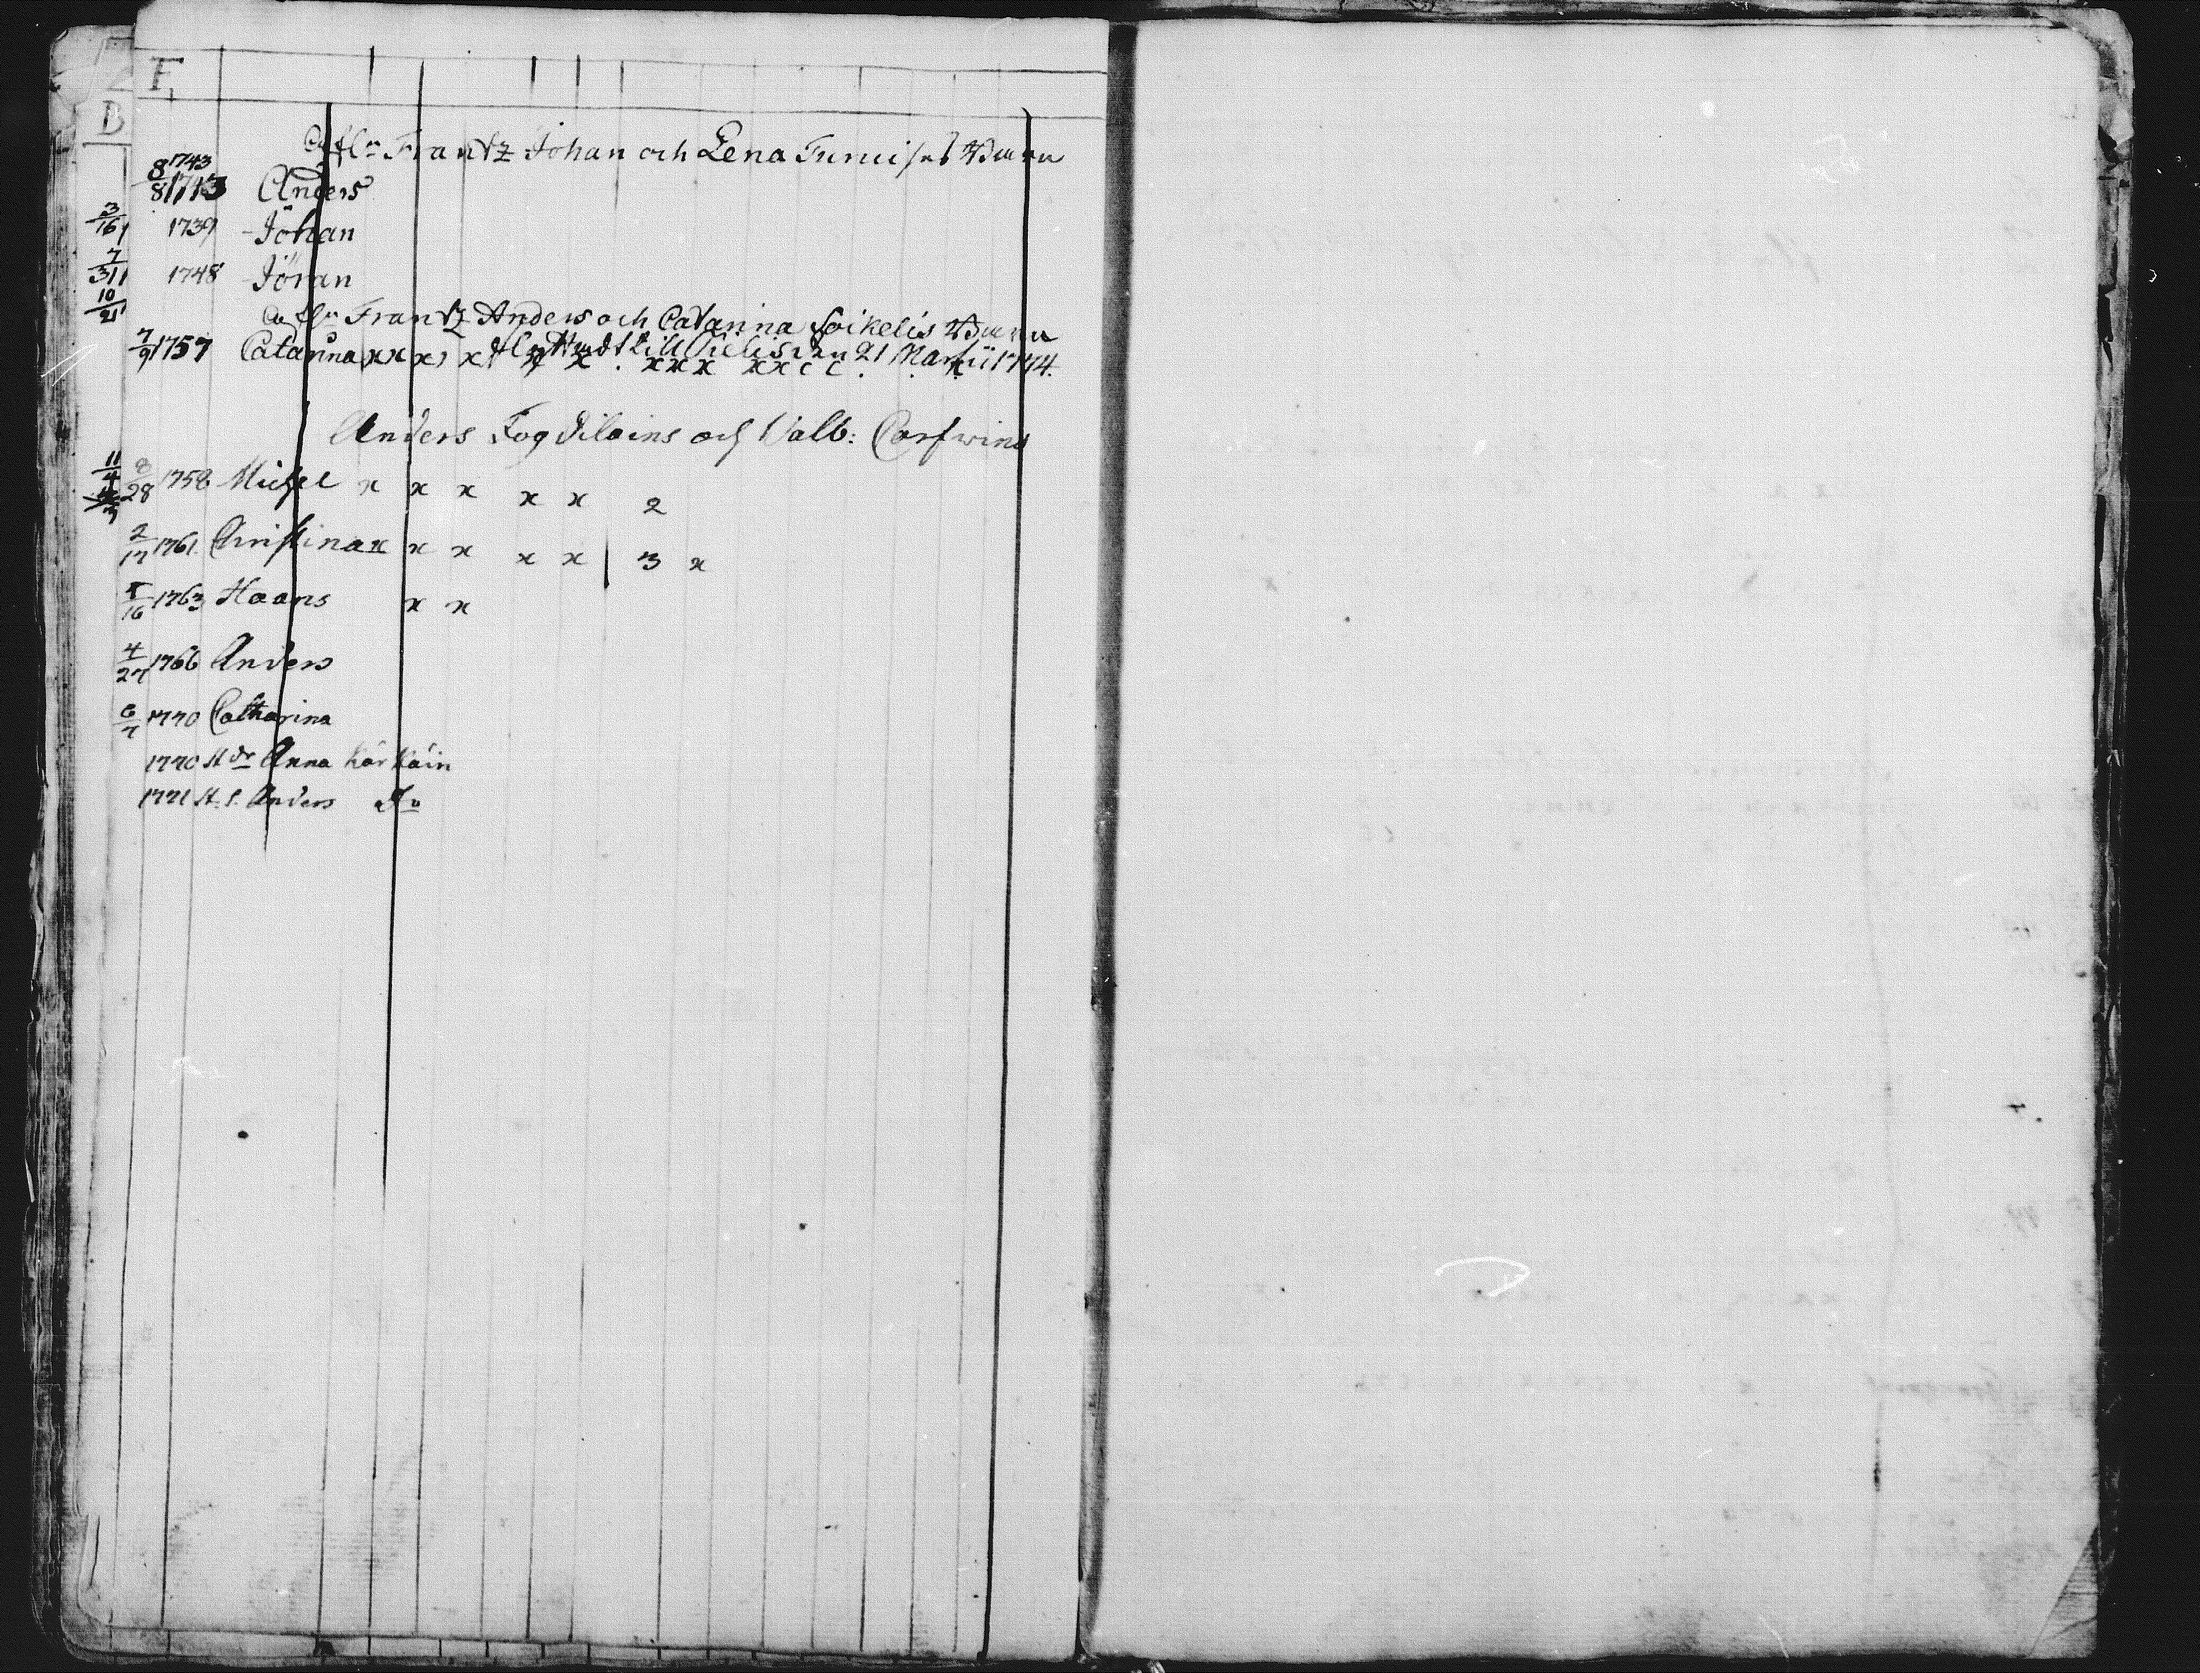 F
B
afl:n Frantz Johan och Lena Barn
1743
8/8 1743 Anders
3/16 1739 Johan
7/31 1748 Jöran
10/21
afl:n Frantz Anders och Catarina Soikelis Barn
7/9 1757 Catarina x x x x x x till 21 Martii 1774.
x x x x x c c
Anders Fogdilains och Valb: Corfwins
11/4 8/28 1758 Michel x x x x x 2
2/17 1761. Christina x x x x x 3 x
1763 Haans x x
4/27 1766 Anders
6/7 1770 Catharina
1770 H dr Anna Kärkäin
1771 H. S. Anders Do